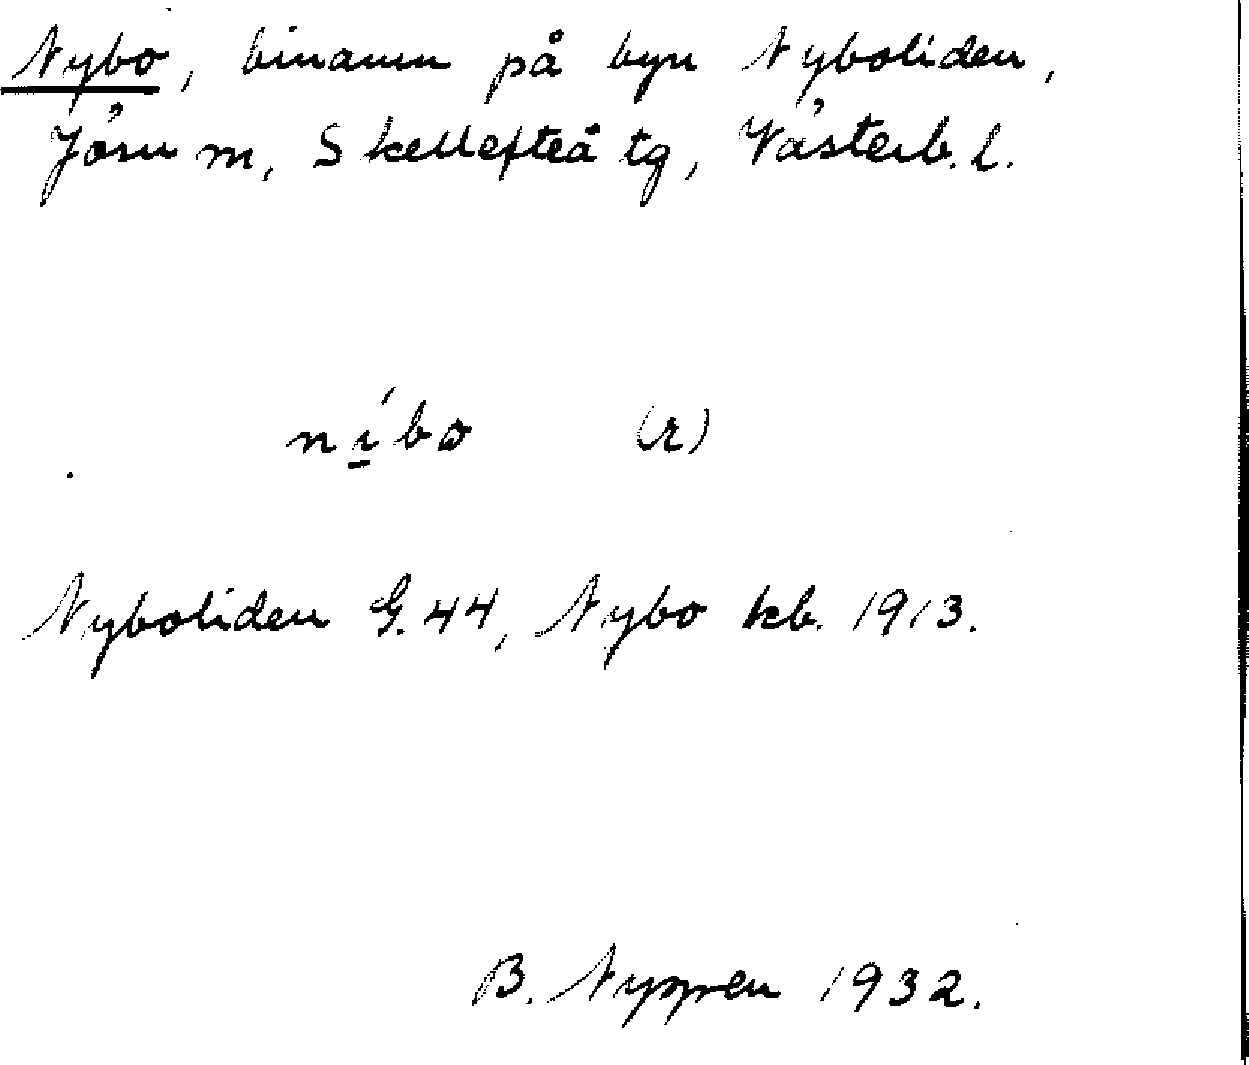 Nybo, binamn på byn Nyboliden,
Jörn m, Skellefteå tg, Västerb. l.
nị́bo (r)
Nyboliden G. 44, Nybo kb. 1913.
B. Nyppen 1932.